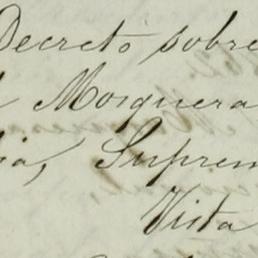 Decreto sobre
Mosquera
Suprem
Vista